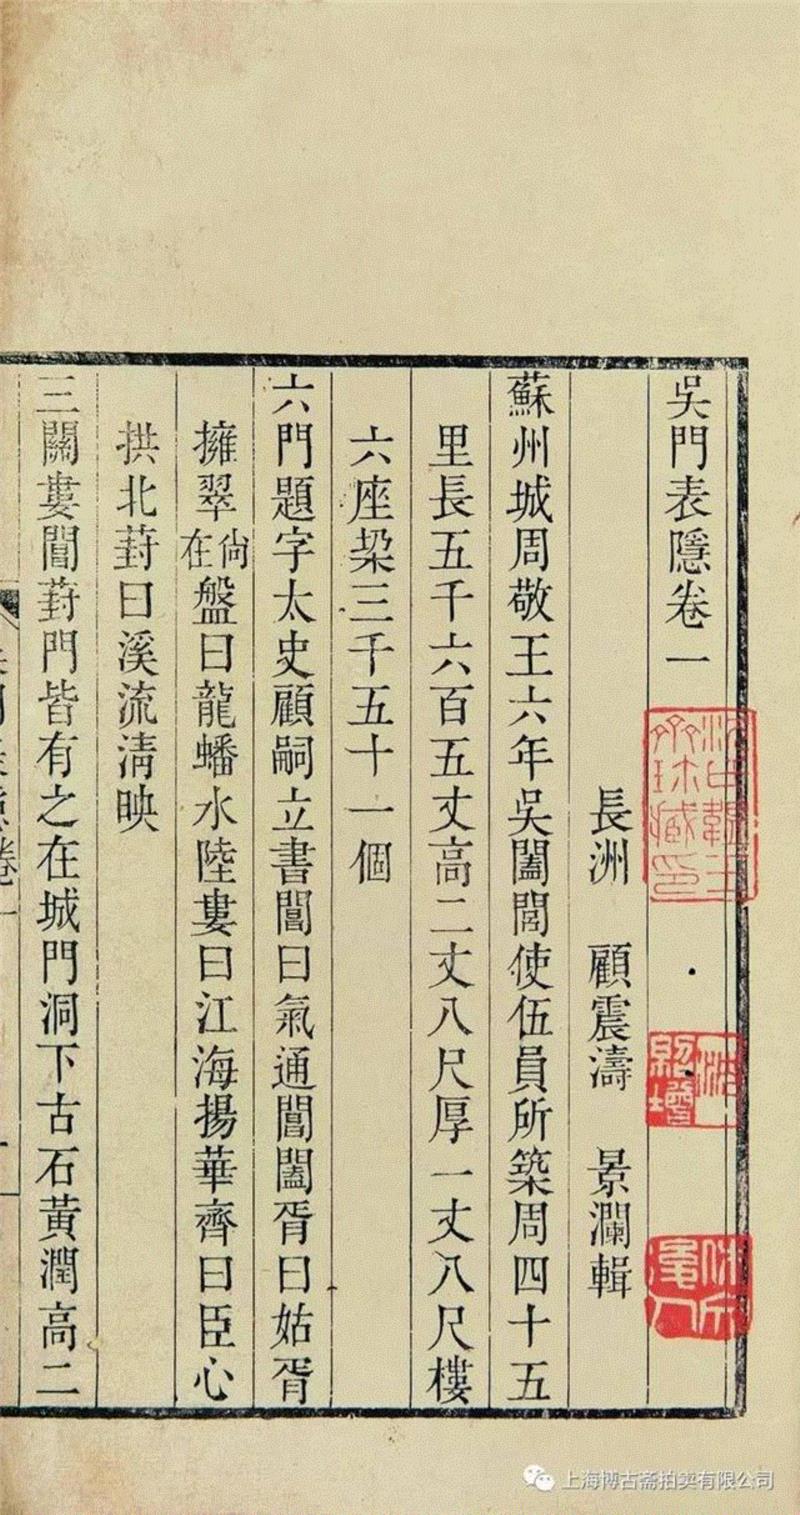 吳門表隱卷一
長洲　顧震濤　景瀾輯
蘇州城周敬王六年吳闔閭使伍員所築周四十五
里長五千六百五丈高二丈八尺厚一丈八尺樓
六座梁三千五十一個
六門題字太史顧嗣立書閶曰氣通閶闔胥曰姑胥
擁翠尙在盤曰龍蟠水陸婁曰江海揚華齊曰臣心
拱北葑曰溪流淸映
三關婁閶葑門皆有之在城門洞下古石黃潤高二
上海博古斋拍卖有限公司